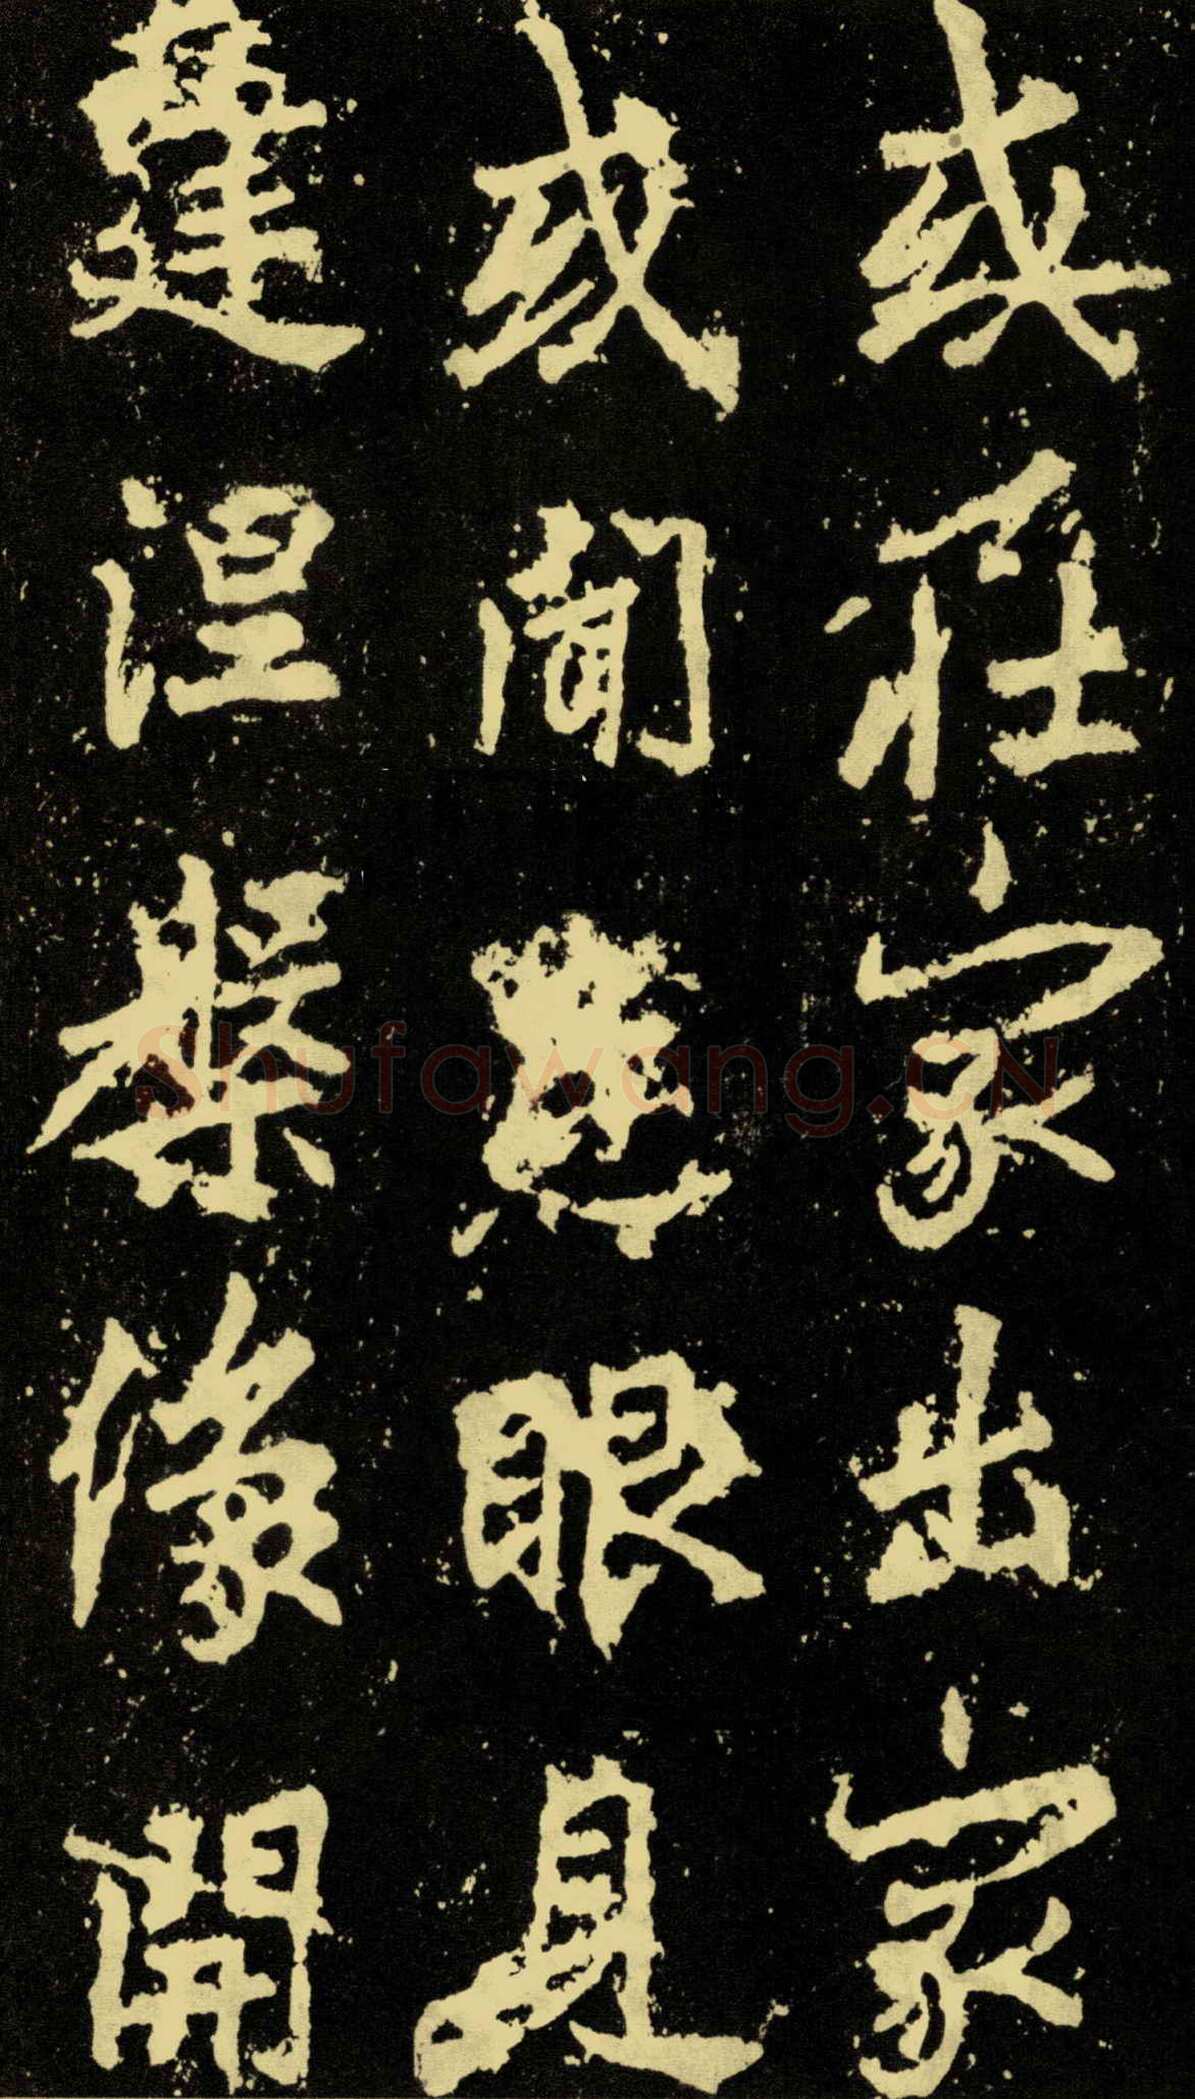 或莊家出家
或聞眼見
涅槃像開
Shufawang.CN